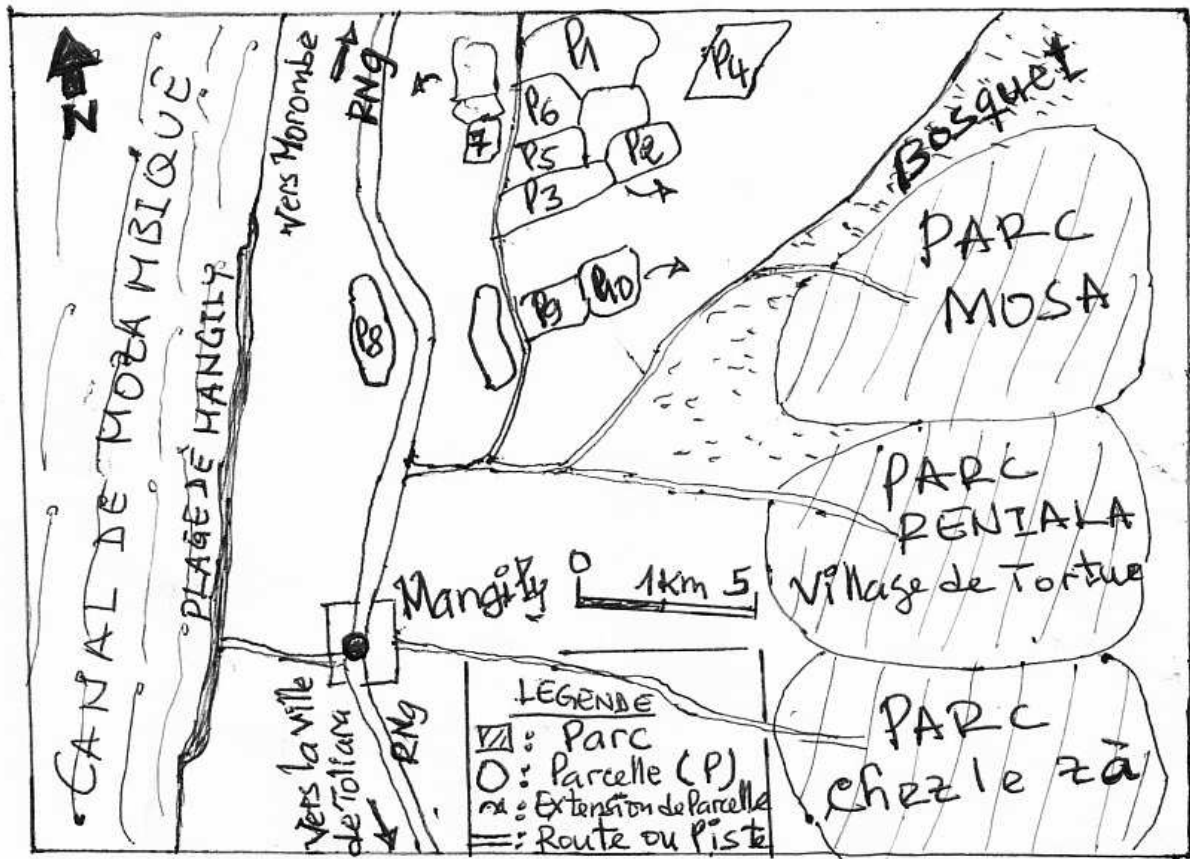 N
CANAL DE MOZAMBIQUE
PLAGE DE MANGILY
Vers Morombe
RN9
7
P1
P6
P5
P3
P2
P4
P9
P10
P8
Bosquet
PARC
MOSA
PARC
RENIALA
Village de Tortue
Mangily
0
1Km 5
PARC
chez le zà
Vers la ville
de Toliara
RN9
LEGENDE
: Parc
: Parcelle (P)
: Extension de Parcelle
: Route ou Piste